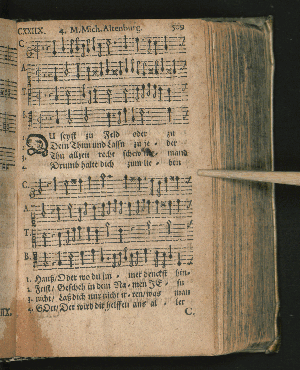 CXXIIX. 4. M. Mich. Altenburg. 509
C
A
T
B
DU seyst zu Feld oder zu
Dein Thun und Lassn zu je- der
Thu allzeit recht schew nie- mand
Drumb halte dich zum lie- ben
C
A
T
B
1. Hauß/ Oder wo du im- mer denckst hin-
2. Frist/ Gescheh in dem Na- men JE- su
3. nicht/ Laß dich nur nicht ir- ren/ was man
4. GOtt/ Der wird dir helffen aus al- ler
C.